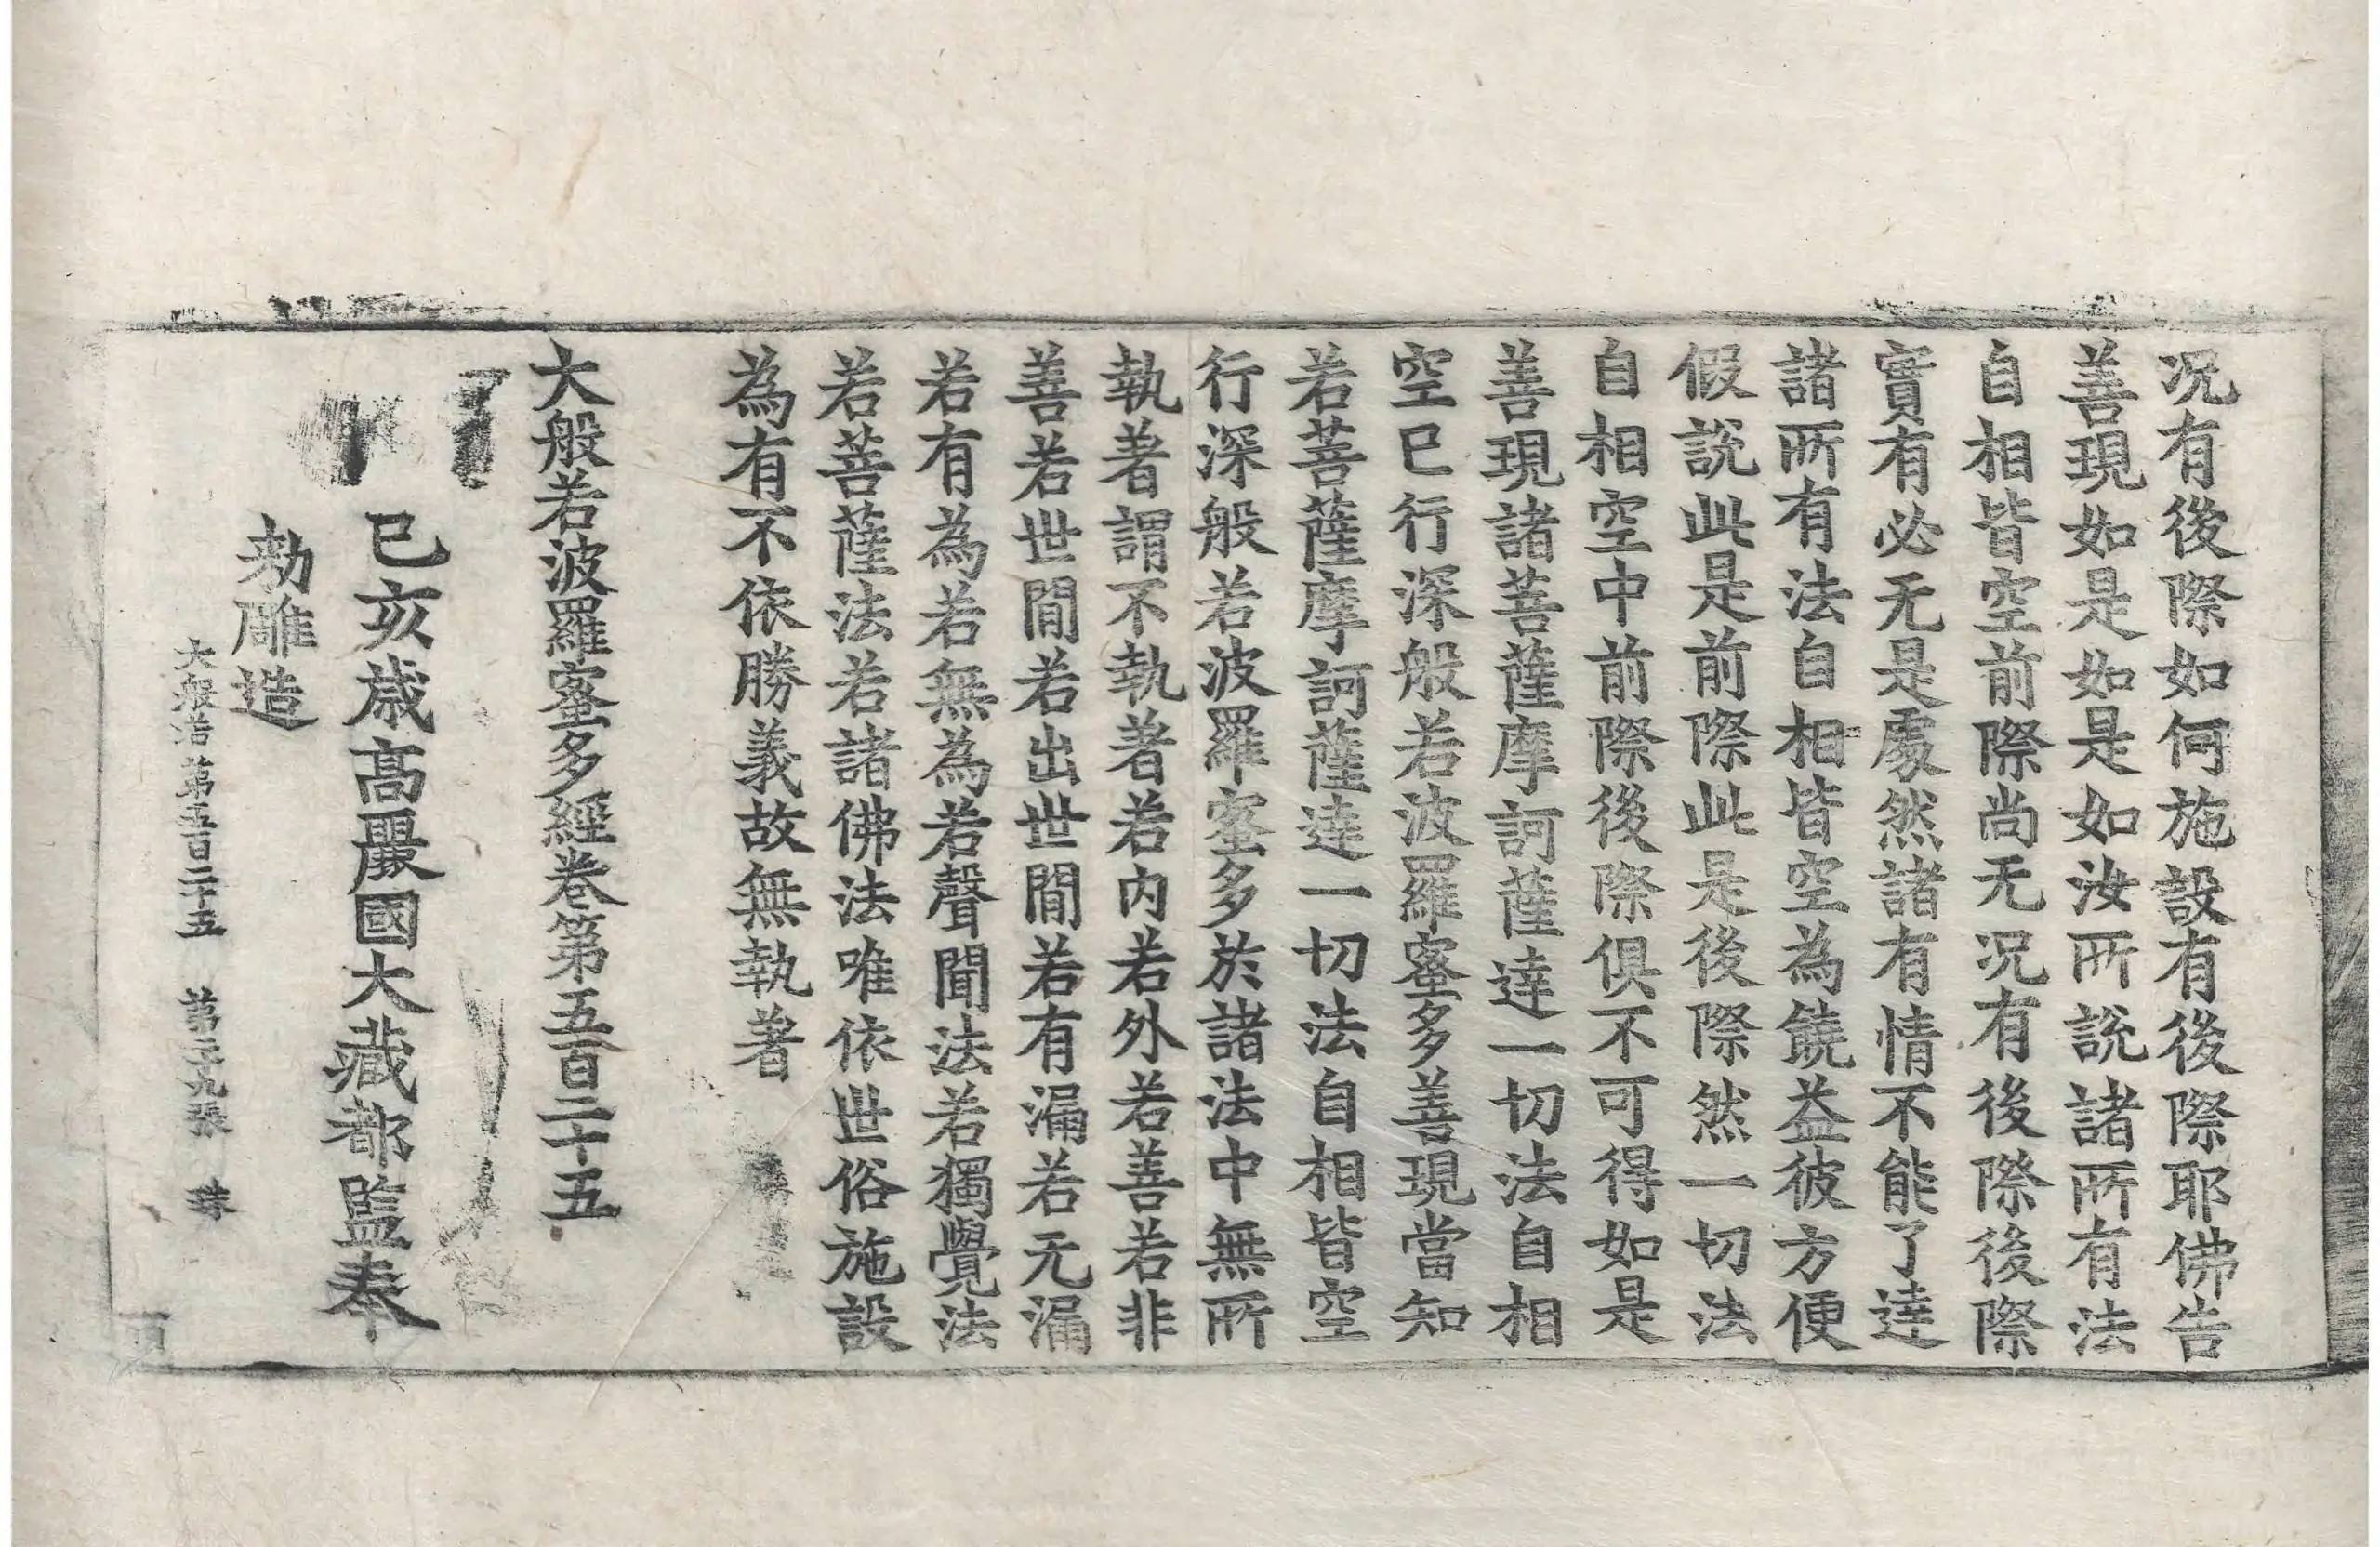 况有後際如何施設有後際耶佛告
善現如是如是如汝所說諸所有法
自相皆空前際尚无况有後際後際
實有必无是處然諸有情不能了達
諸所有法自相皆空為饒益彼方便
假說此是前際此是後際然一切法
自相空中前際後際俱不可得如是
善現諸菩薩摩訶薩達一切法自相
空已行深般若波羅蜜多善現當知
若菩薩摩訶薩達一切法自相皆空
行深般若波羅蜜多於諸法中無所
執著謂不執著若內若外若善若非
善若世間若出世間若有漏若无漏
若有為若無為若聲聞法若獨覺法
若菩薩法若諸佛法唯依世俗施設
為有不依勝義故無執著
大般若波羅蜜多經卷第五百二十五
己亥歲高麗國大藏都監奉
勑雕造
大般若 第五百二十五 第二十九張 珠